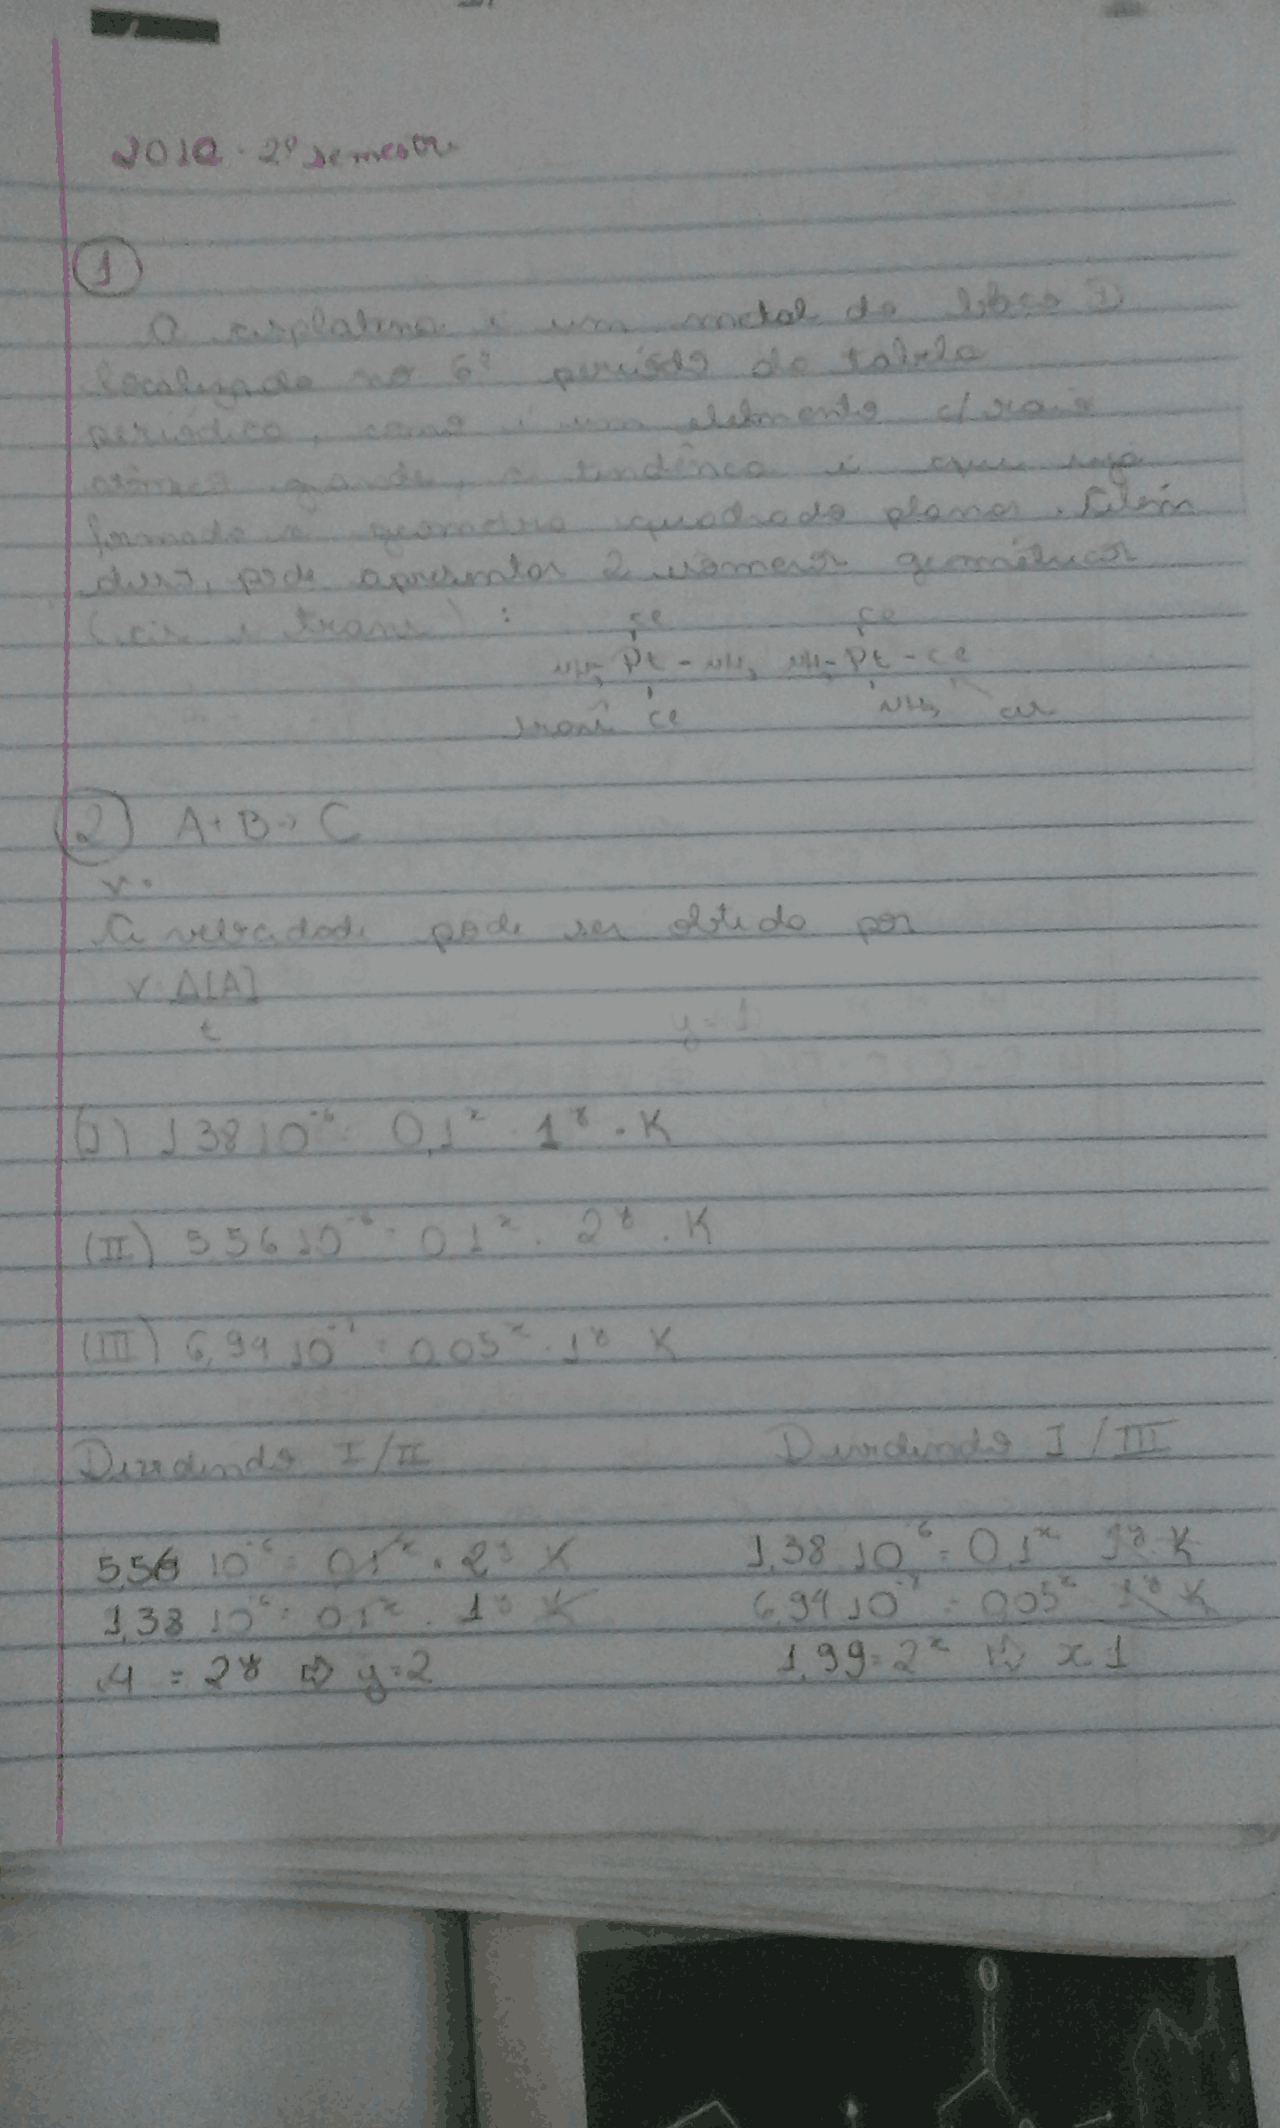 2010 - 2º semestre
1
A cisplatina é um metal do bloco D
localizado no 6º período da tabela
periódica, como é um elemento c/ raio
atômico grande, a tendência é que seja
formada a geometria quadrado planar. Além
disso, pode apresentar 2 isomeros geométricos
(cis e trans) :
Cl Cl
NH3 - Pt - NH3 NH3 - Pt - Cl
trans Cl NH3 cis
2 A + B → C
v =
A velocidade pode ser obtida por
v = Δ[A]
t
y = 1
(I) 1,38 10^-6 = 0,1^x . 1^y . K
(II) 5,56 10^-6 = 0,1^x . 2^y . K
(III) 6,94 10^-7 = 0,05^x . 1^y K
Dividindo I / II Dividindo I / III
5,56 10^-6 = 0,1^x . 2^y K 1,38 . 10^-6 = 0,1^x 1^y . K
1,38 10^-6 = 0,1^x . 1^y K 6,94 10^-7 = 0,05^x 1^y K
4 = 2^y ⇨ y = 2 1,99 = 2^x ⇨ x = 1